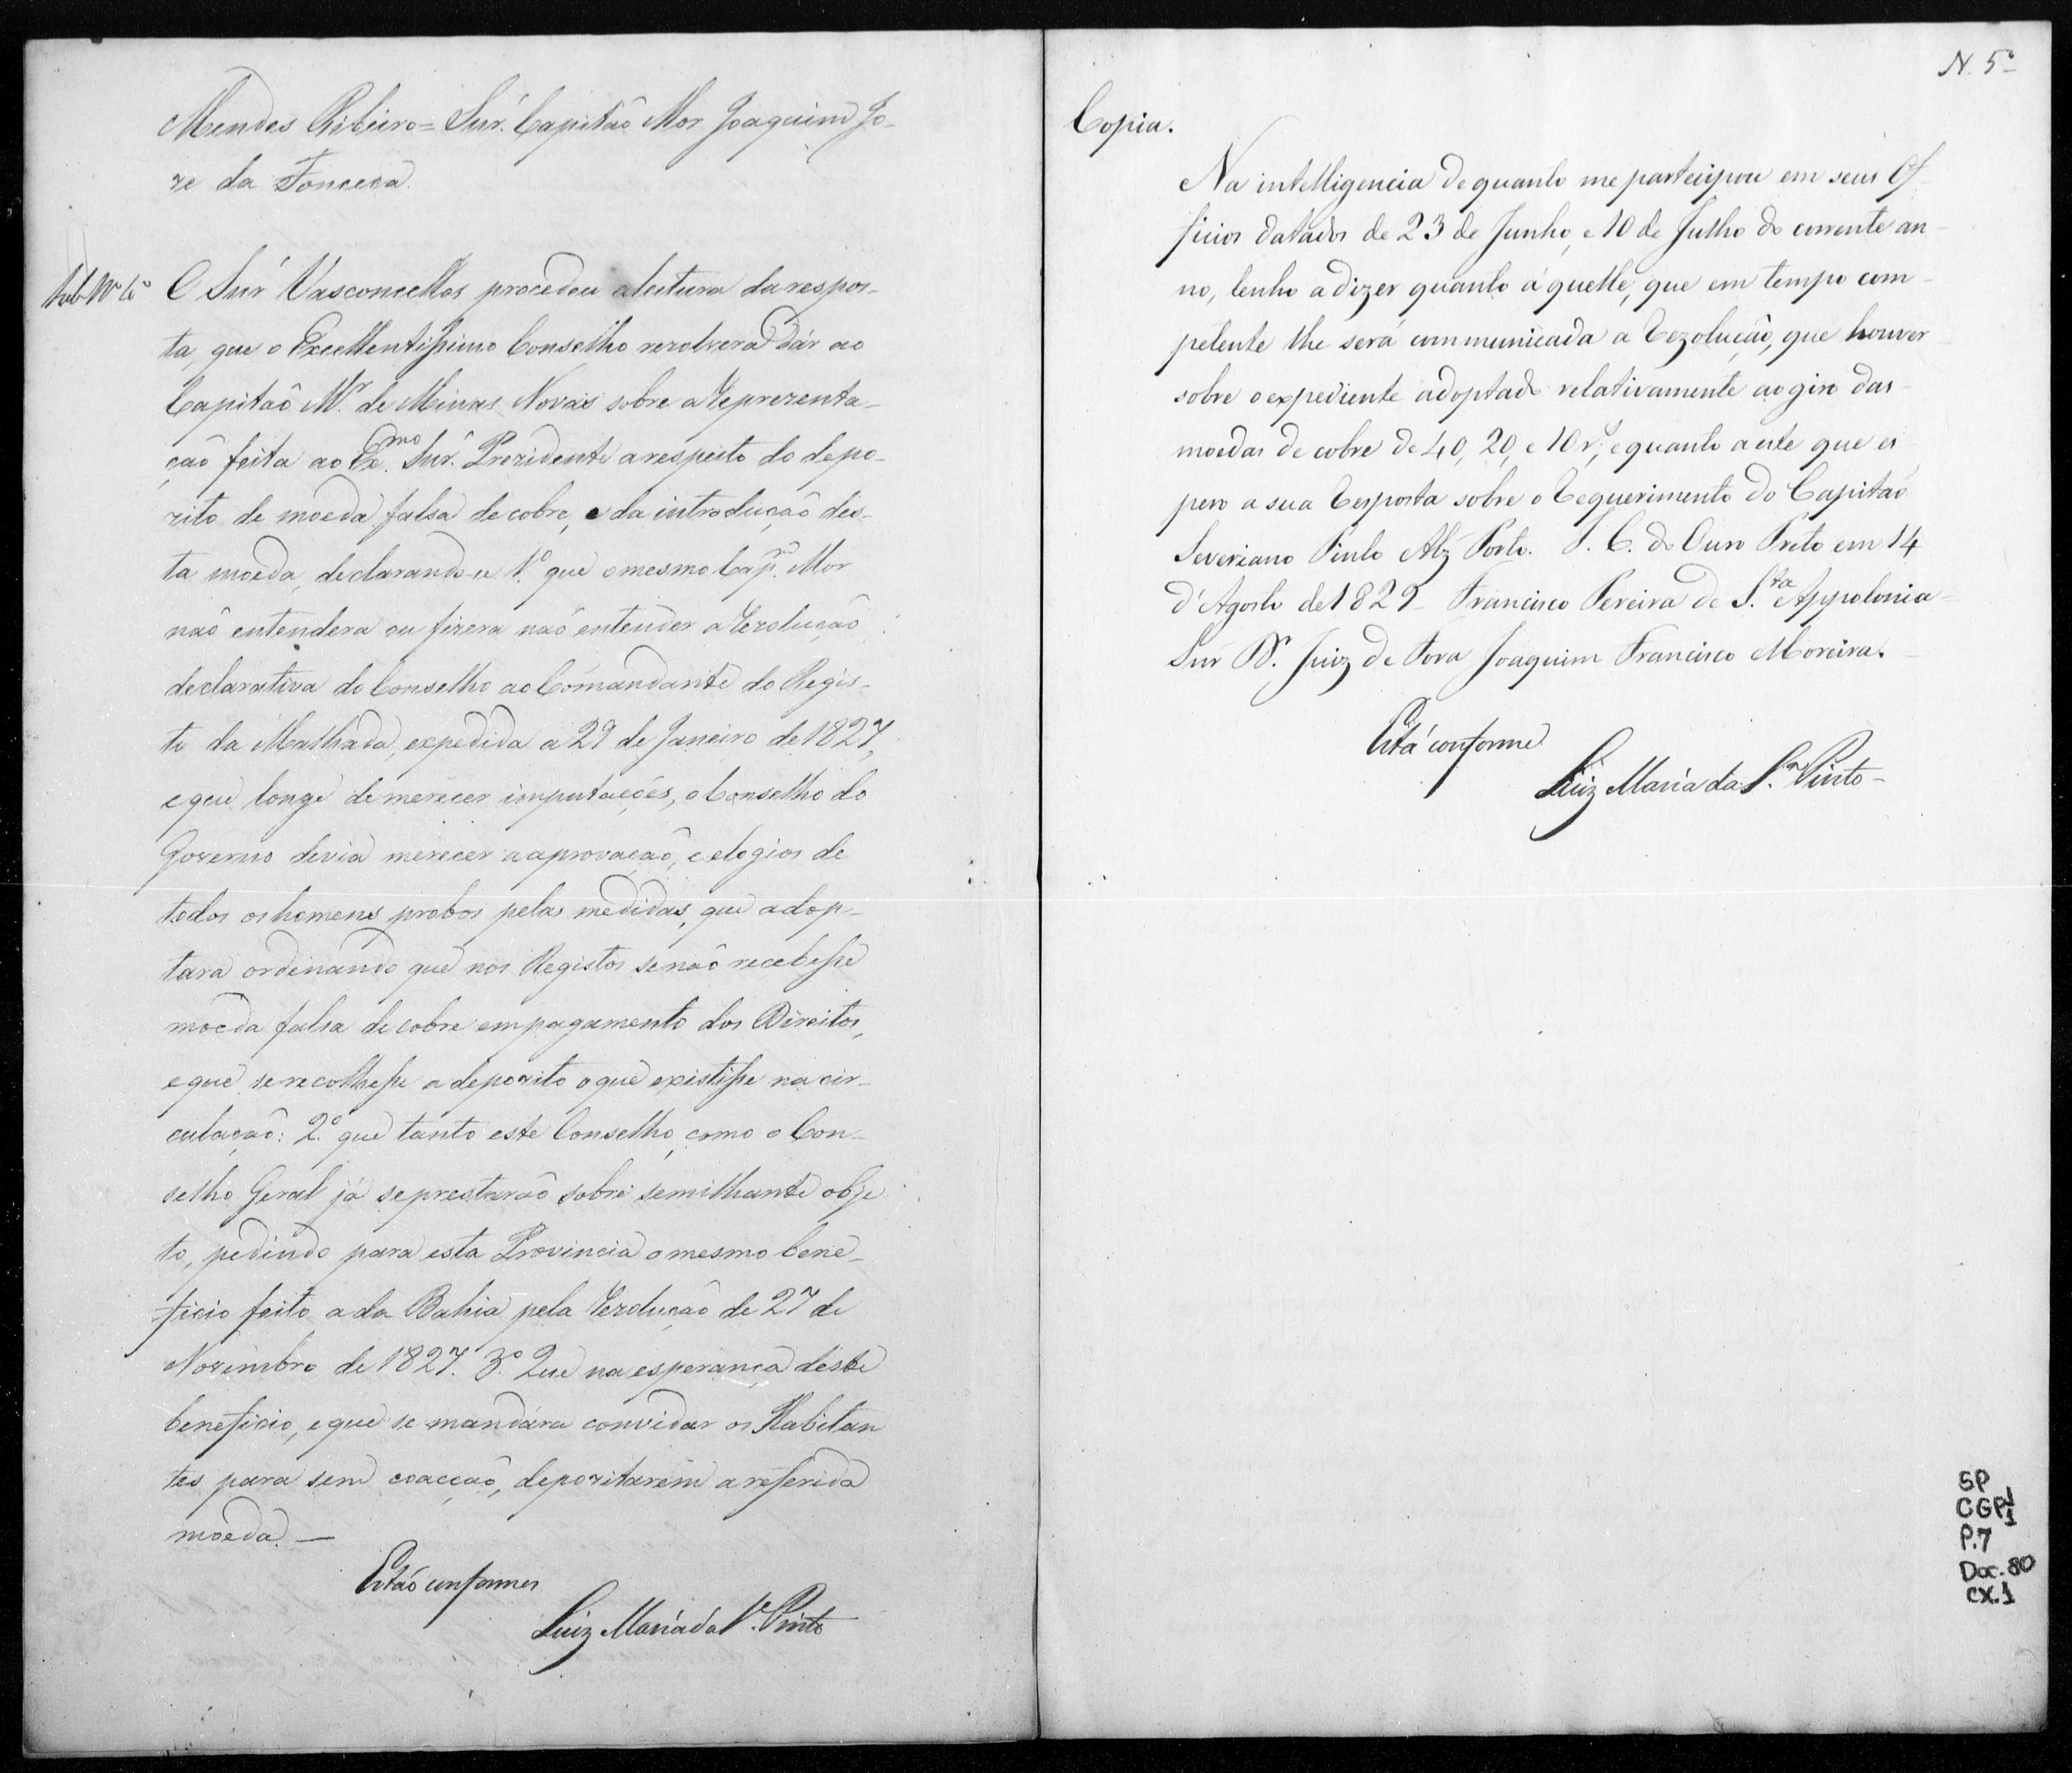 Mendes Ribeiro = Snr. Capitaõ Mor Joaquim Jo-
ze da Fonceca.
Sub Nº 4º
O Snr Vasconcellos procedeu a leitura da respos-
ta, que o Excellentissimo Conselho rezolvera dár ao
Capitaõ Mr. de Minas Novas sobre a Reprezenta-
çaõ feita ao Exmo. Snr. Prezidente a respeito do depo-
zito de moeda falsa de cobre, e da introducçaõ des-
ta moeda, declarando-se 1.º que o mesmo Capm. Mor
naõ entendera ou fizera naõ entender a Rezoluçaõ
declarativa do Conselho ao Comandante do Regis-
to da Malhada, expedida a 29 de Janeiro de 1827,
e que longe de merecer imputações, o Conselho do
Governo devia merecer a aprovaçaõ, e elogios de
todos os homens probos pelas medidas, que adop-
tara ordenando que nos Registos se naõ recebesse
moeda falsa de cobre em pagamento dos Direitos,
e que se recolhesse a depozito o que existisse na cir-
culaçaõ: 2.º que tanto este Conselho, como o Con-
selho Geral já se prestaraõ sobre semilhante obje
to, pedindo para esta Provincia o mesmo bene-
ficio feito a da Bahia pela Rezoluçaõ de 27 de
Novembro de 1827. 3.º Que na esperança deste
beneficio, e que se mandára convidar os Habitan
tes para sem coacçaõ, depozitarem a referida
moeda. —
Estaõ conformes
Luiz Maria da Sª. Pinto
N. 5º
Copia.
Na intelligencia de quanto me participou em seus Of-
ficios datados de 23 de Junho, e 10 de Julho do corrente an-
no, tenho a dizer quanto á quelle, que em tempo com-
petente lhe será communicada a Rezoluçaõ, que houver
sobre o expediente adoptado relativamente ao giro das
moedas de cobre de 40, 20, e 10 rs, e quanto a este que es
pero a sua Resposta sobre o Requerimento do Capitaõ
Severiano Pinto Alz Porto. I. C. do Ouro Preto em 14
d'Agosto de 1829 - Francisco Pereira de S.ta Appolonia -
Snr Dr. Juiz de Fora Joaquim Francisco Moreira.
Está conforme
Luiz Maria da Sª. Pinto -
SP
CGP1
P.7
Doc. 80
CX.1